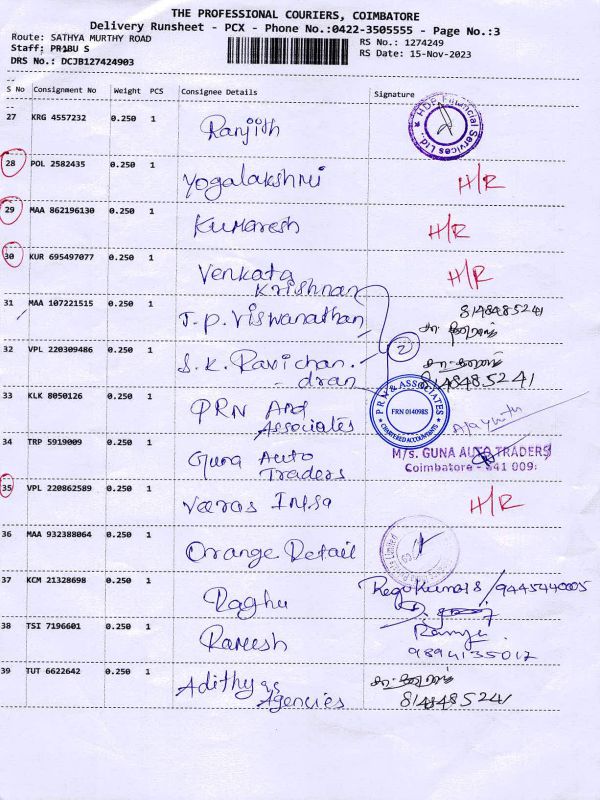 THE PROFESSIONAL COURIERS, COIMBATORE
Delivery Runsheet - PCX - Phone No.:0422-3505555 - Page No.:3
Route: SATHYA MURTHY ROAD
RS No.: 1274249
Staff: PRABU S
RS Date: 15-Nov-2023
DRS No.: DCJB127424903
S No Consignment No Weight PCS Consignee Details Signature
27 KRG 4557232 0.250 1 Ranjith HDB Financial Services Ltd.
28 POL 2582435 0.250 1 Yogalakshmi H/R
29 MAA 862196130 0.250 1 Kumaresh H/R
30 KUR 695497077 0.250 1 Venkata H/R
Krishnan
31 MAA 107221515 0.250 1 T.P. Viswanathan 8148485241
32 VPL 220309486 0.250 1 S.K. Ravichan. 2
- dran 8148485241
33 KLK 8050126 0.250 1 PRN And
Associates
PRN & ASSOCIATES
FRN 014098S
CHARTERED ACCOUNTANTS
34 TRP 5919009 0.250 1 Guna Auto
Traders
M/s. GUNA AUTO TRADERS
Coimbatore - 641 009.
35 VPL 220862589 0.250 1 H/R
36 MAA 932388064 0.250 1 Orange Retail
37 KCM 21328698 0.250 1 Raghu Regukumar S / 9445440005
38 TSI 7196601 0.250 1 Rameesh Ramju
9894135017
39 TUT 6622642 0.250 1 Adithya
Agencies 8148485241